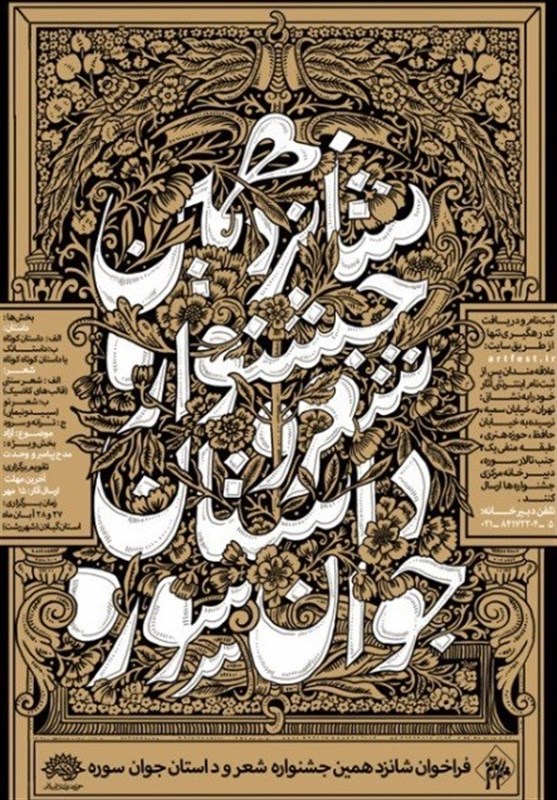 شانزدهمین
جشنواره
شعر و
داستان
جوان سوره
ثبت‌نام و دریافت
کد رهگیری تنها
از طریق سایت:
artfest.ir
علاقه‌مندان پس از
ثبت‌نام اینترنتی آثار
خود را به نشانی:
تهران، خیابان سمیه،
نرسیده به خیابان
حافظ، حوزه هنری،
طبقه منفی یک
جنب تالار سوره،
دبیرخانه مرکزی
جشنواره‌ها ارسال
کنند.
تلفن دبیرخانه:
۵ ـ ۸۴۱۷۲۲۰۴ ـ ۰۲۱
بخش‌ها:
داستان:
الف: داستان کوتاه
ب: داستانک
یا داستان کوتاه کوتاه
شعر:
الف: شعر سنتی
(قالب‌های کلاسیک)
ب: شعر نو
(سپید و نیمایی)
ج: ترانه و سرود
موضوع: آزاد
بخش ویژه:
مدح پیامبر و وحدت
تقویم برگزاری:
آخرین مهلت
ارسال آثار: ۱۵ مهر
زمان برگزاری:
۲۷ و ۲۸ آبان ماه
استان گیلان (شهر رشت)
فراخوان شانزدهمین جشنواره شعر و داستان جوان سوره